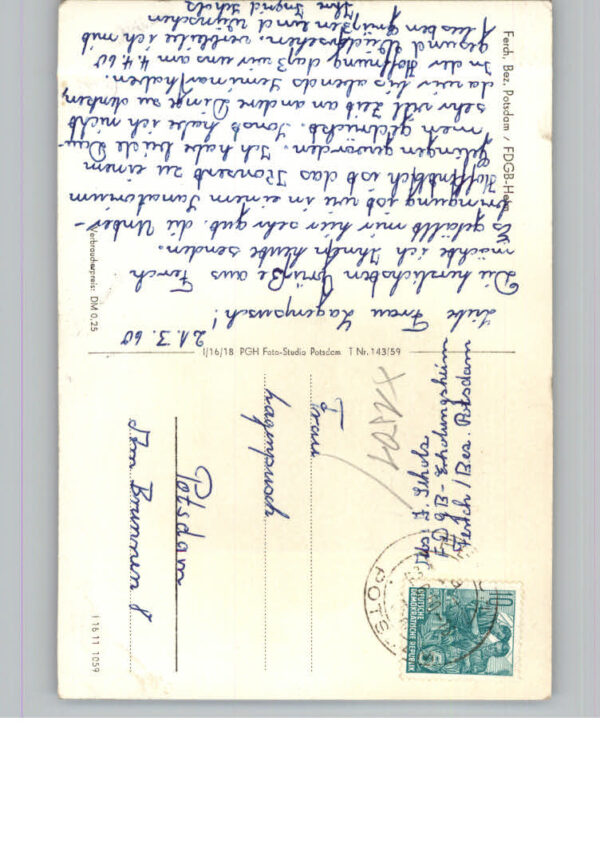 Ferch, Bez. Potsdam / FDGB-Heim
21.3.60
Liebe Frau Lagenpusch!
Die herzlichsten Grüße aus Ferch
möchte ich Ihnen heute senden.
Es gefällt mir hier sehr gut, die Unter-
bringung ist wie in einem Sanatorium
Hoffentlich ist das Konzert zu einem
Gelingen geworden. Ich habe beide Dau-
men gedrückt. Sonst habe ich nicht
sehr viel Zeit an andere Dinge zu denken,
da wir bis abends Seminar haben.
In der Hoffnung daß wir uns am 4.4.60
gesund wiedersehen, verbleibe ich mit
lieben Grüßen und Wünschen
Ihre Ingrid Scholz
Verbraucherpreis: DM 0,25
I/16/18 PGH Foto-Studio Potsdam T Nr. 143/59
Abs. I. Scholz
FDGB-Erholungsheim
Ferch/Bez. Potsdam
Frau
Lagenpusch
Potsdam
Am Brunnen 8
I 16 11 1059
10
DEUTSCHE
DEMOKRATISCHE REPUBLIK
POTS